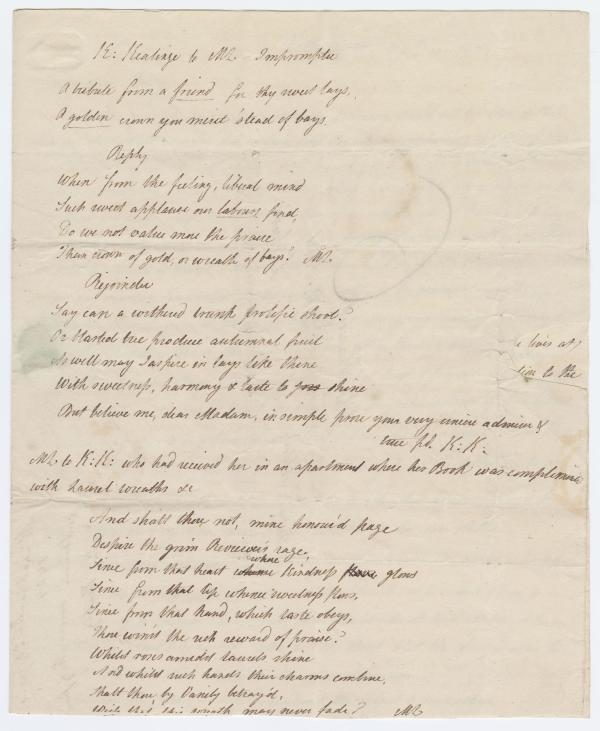 K: Keatinge to ML - Impromptu
A tribute from a friend for thy sweet lays,
A golden crown you merit 'stead of bays.
Reply
When from the feeling, liberal mind
Such sweet applause our labours find,
Do we not value more the praise
Than crown of gold, or wreath of bays? ML.
Rejoinder
Say can a wither'd trunk prolific shoot?
Or blasted tree produce autumnal fruit
As well may I aspire in lays like thine
With sweetness, harmony & taste to shine
But believe me, dear Madam, in simple prose your very sincere admirer &
true fd. K: K:
e lives at
tion to the
ML to K: K: who had received her in an apartment where her Book was complimented
with Laurel wreaths &c
And shalt thou not, mine honour'd page
Despise the grim Reviewer's rage,
Since from that heart whose kindness glows
Since from that lip whence sweetness flows,
Since from that hand, which taste obeys,
Thou win'st the rich reward of praise?
Whilst roses amidst laurels shine
And whilst such hands their charms combine,
Shalt thou by Vanity betray'd,
Wish this wreath may never fade? ML